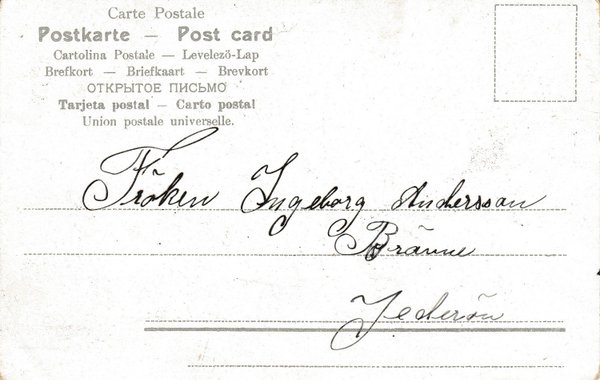 Carte Postale
Postkarte — Post card
Cartolina Postale — Levelező-Lap
Brefkort — Briefkaart — Brevkort
ОТКРЫТОЕ ПИСЬМО
Tarjeta postal — Carto postal
Union postale universelle.
Fröken Ingeborg Andersson
Bränne
Jederön